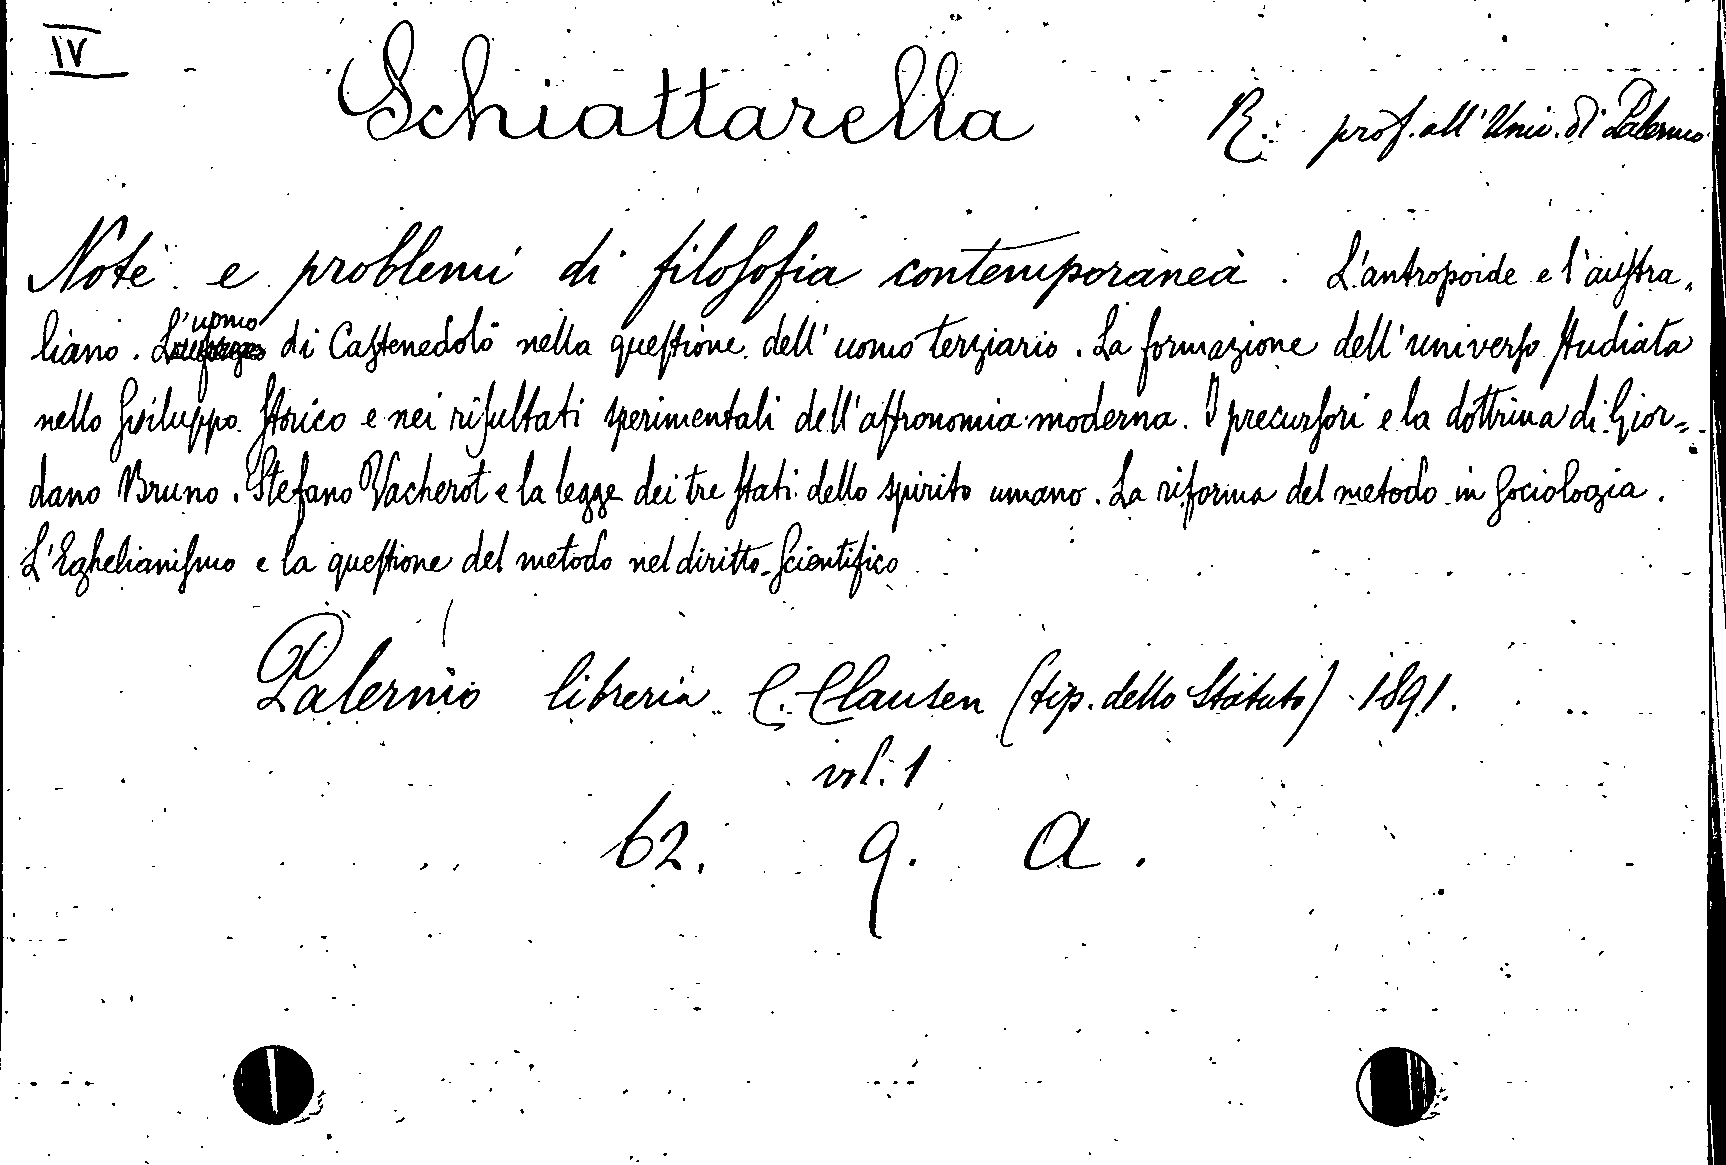 IV
Schiattarella R. prof. all' Univ. di Palermo
Note e problemi di filosofia contemporanea. L'antropoide e l'austra-
liano. L'uomo di Castenedolo nella questione dell'uomo terziario. La formazione dell'universo studiata
nello sviluppo storico e nei risultati sperimentali dell'astronomia moderna. I precursori e la dottrina di Gior=
dano Bruno. Stefano Vacherot e la legge dei tre stati dello spirito umano. La riforma del metodo in sociologia.
L'Eghelianismo e la questione del metodo nel diritto scientifico
Palermo libreria C. Clausen (tip. dello Statuto) 1891.
vol. 1
62. 9. A.